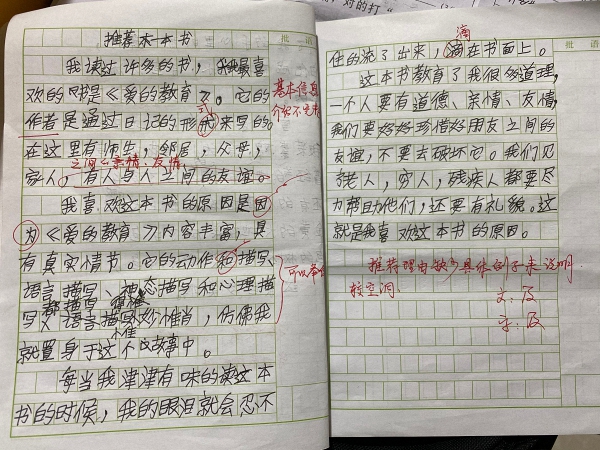 推荐一本书
我读过许多的书，我最喜
欢的书是《爱的教育》。它的
作者是通过日记的形式来写的。
在这里有师生，邻居，父母，
之间的亲情、友情
家人，有人与人之间的友谊。
我喜欢这本书的原因是因
为《爱的教育》内容丰富，具
有真实情节。它的动作和描写、
语言描写、神态描写和心理描
写，语言描写惟妙惟肖，仿佛我
就置身于这个故事中。
每当我津津有味的读这本
书的时候，我的眼泪就会忍不
批语
基本信息
介绍不完整
可以
住的流了出来，滴在书面上。
这本书教育了我很多道理，
一个人要有道德、亲情、友情，
我们要好好珍惜好朋友之间的
友谊，不要去破坏它。我们见
老人，穷人，残疾人都要尽
力帮助他们，还要有礼貌。这
就是我喜欢这本书的原因。
滴
批语
推荐理由缺少具体例子来说明，
较空洞。
文：及
字：及
对的打“